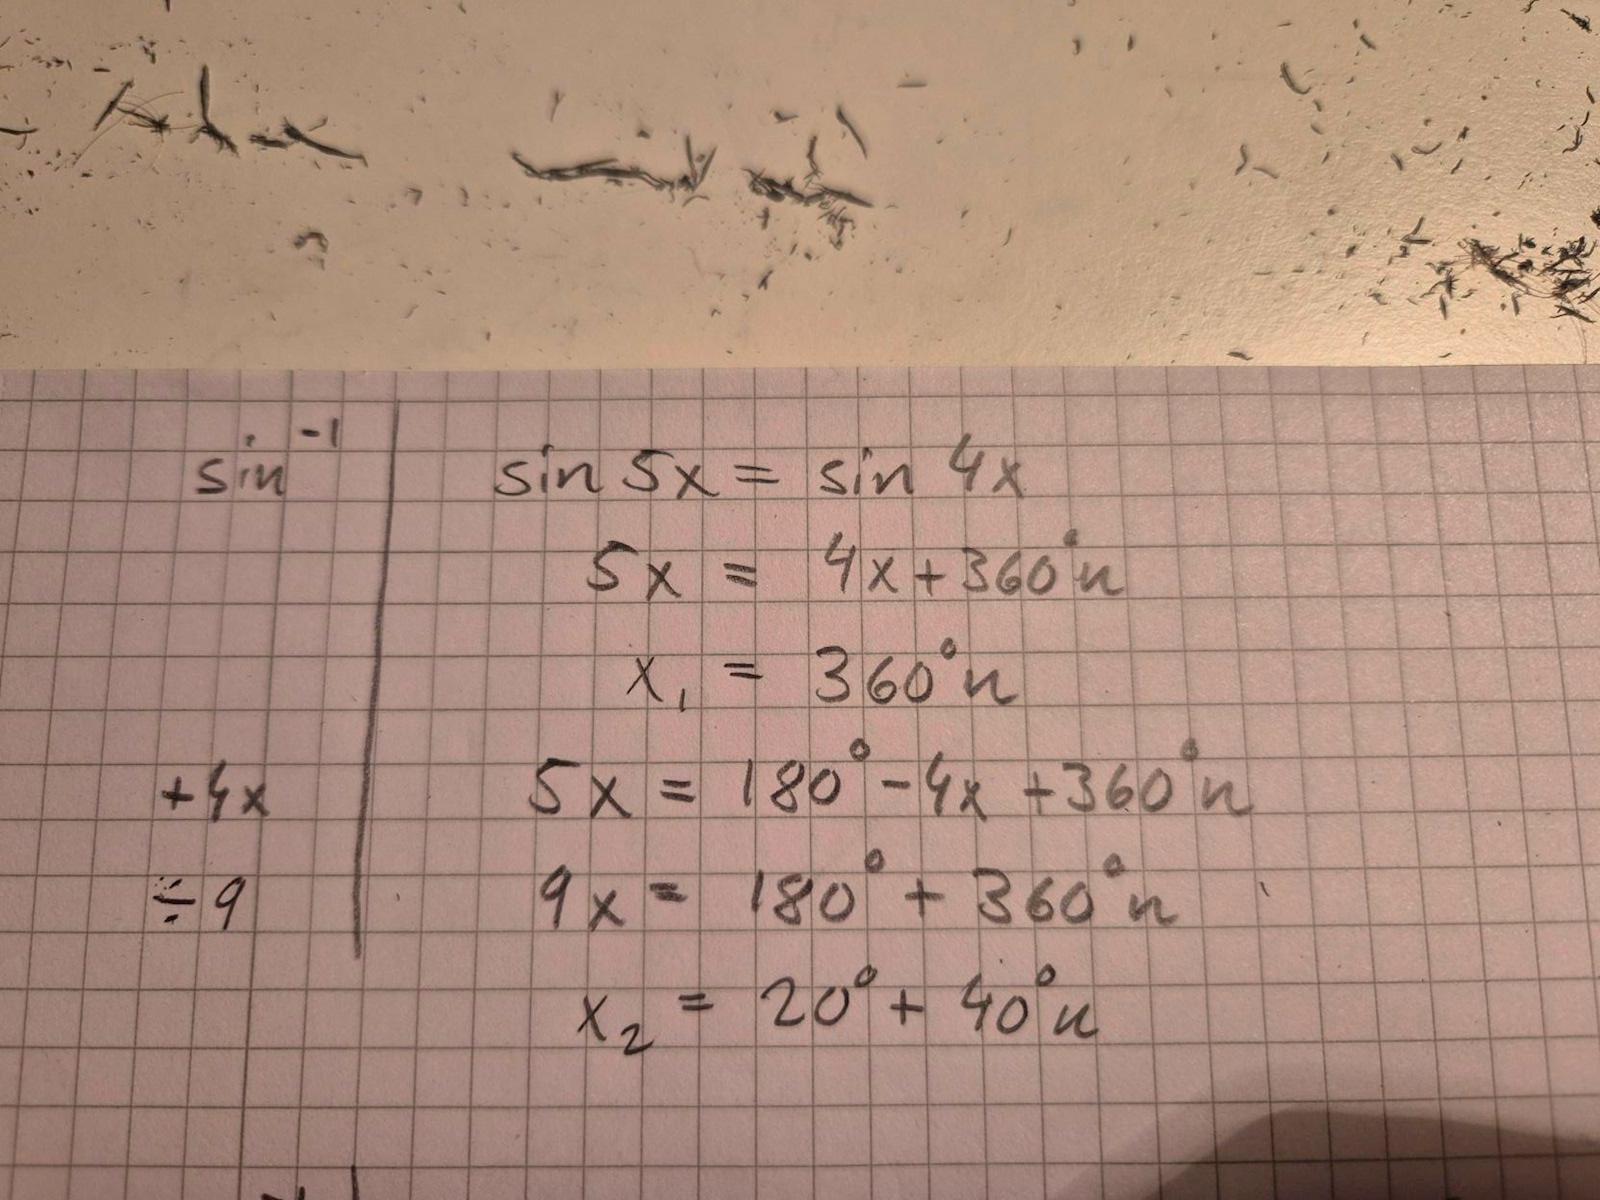 sin⁻¹ | sin 5x = sin 4x
5x = 4x + 360°n
x₁ = 360°n
+4x | 5x = 180° - 4x + 360°n
÷9 | 9x = 180° + 360°n
x₂ = 20° + 40°n